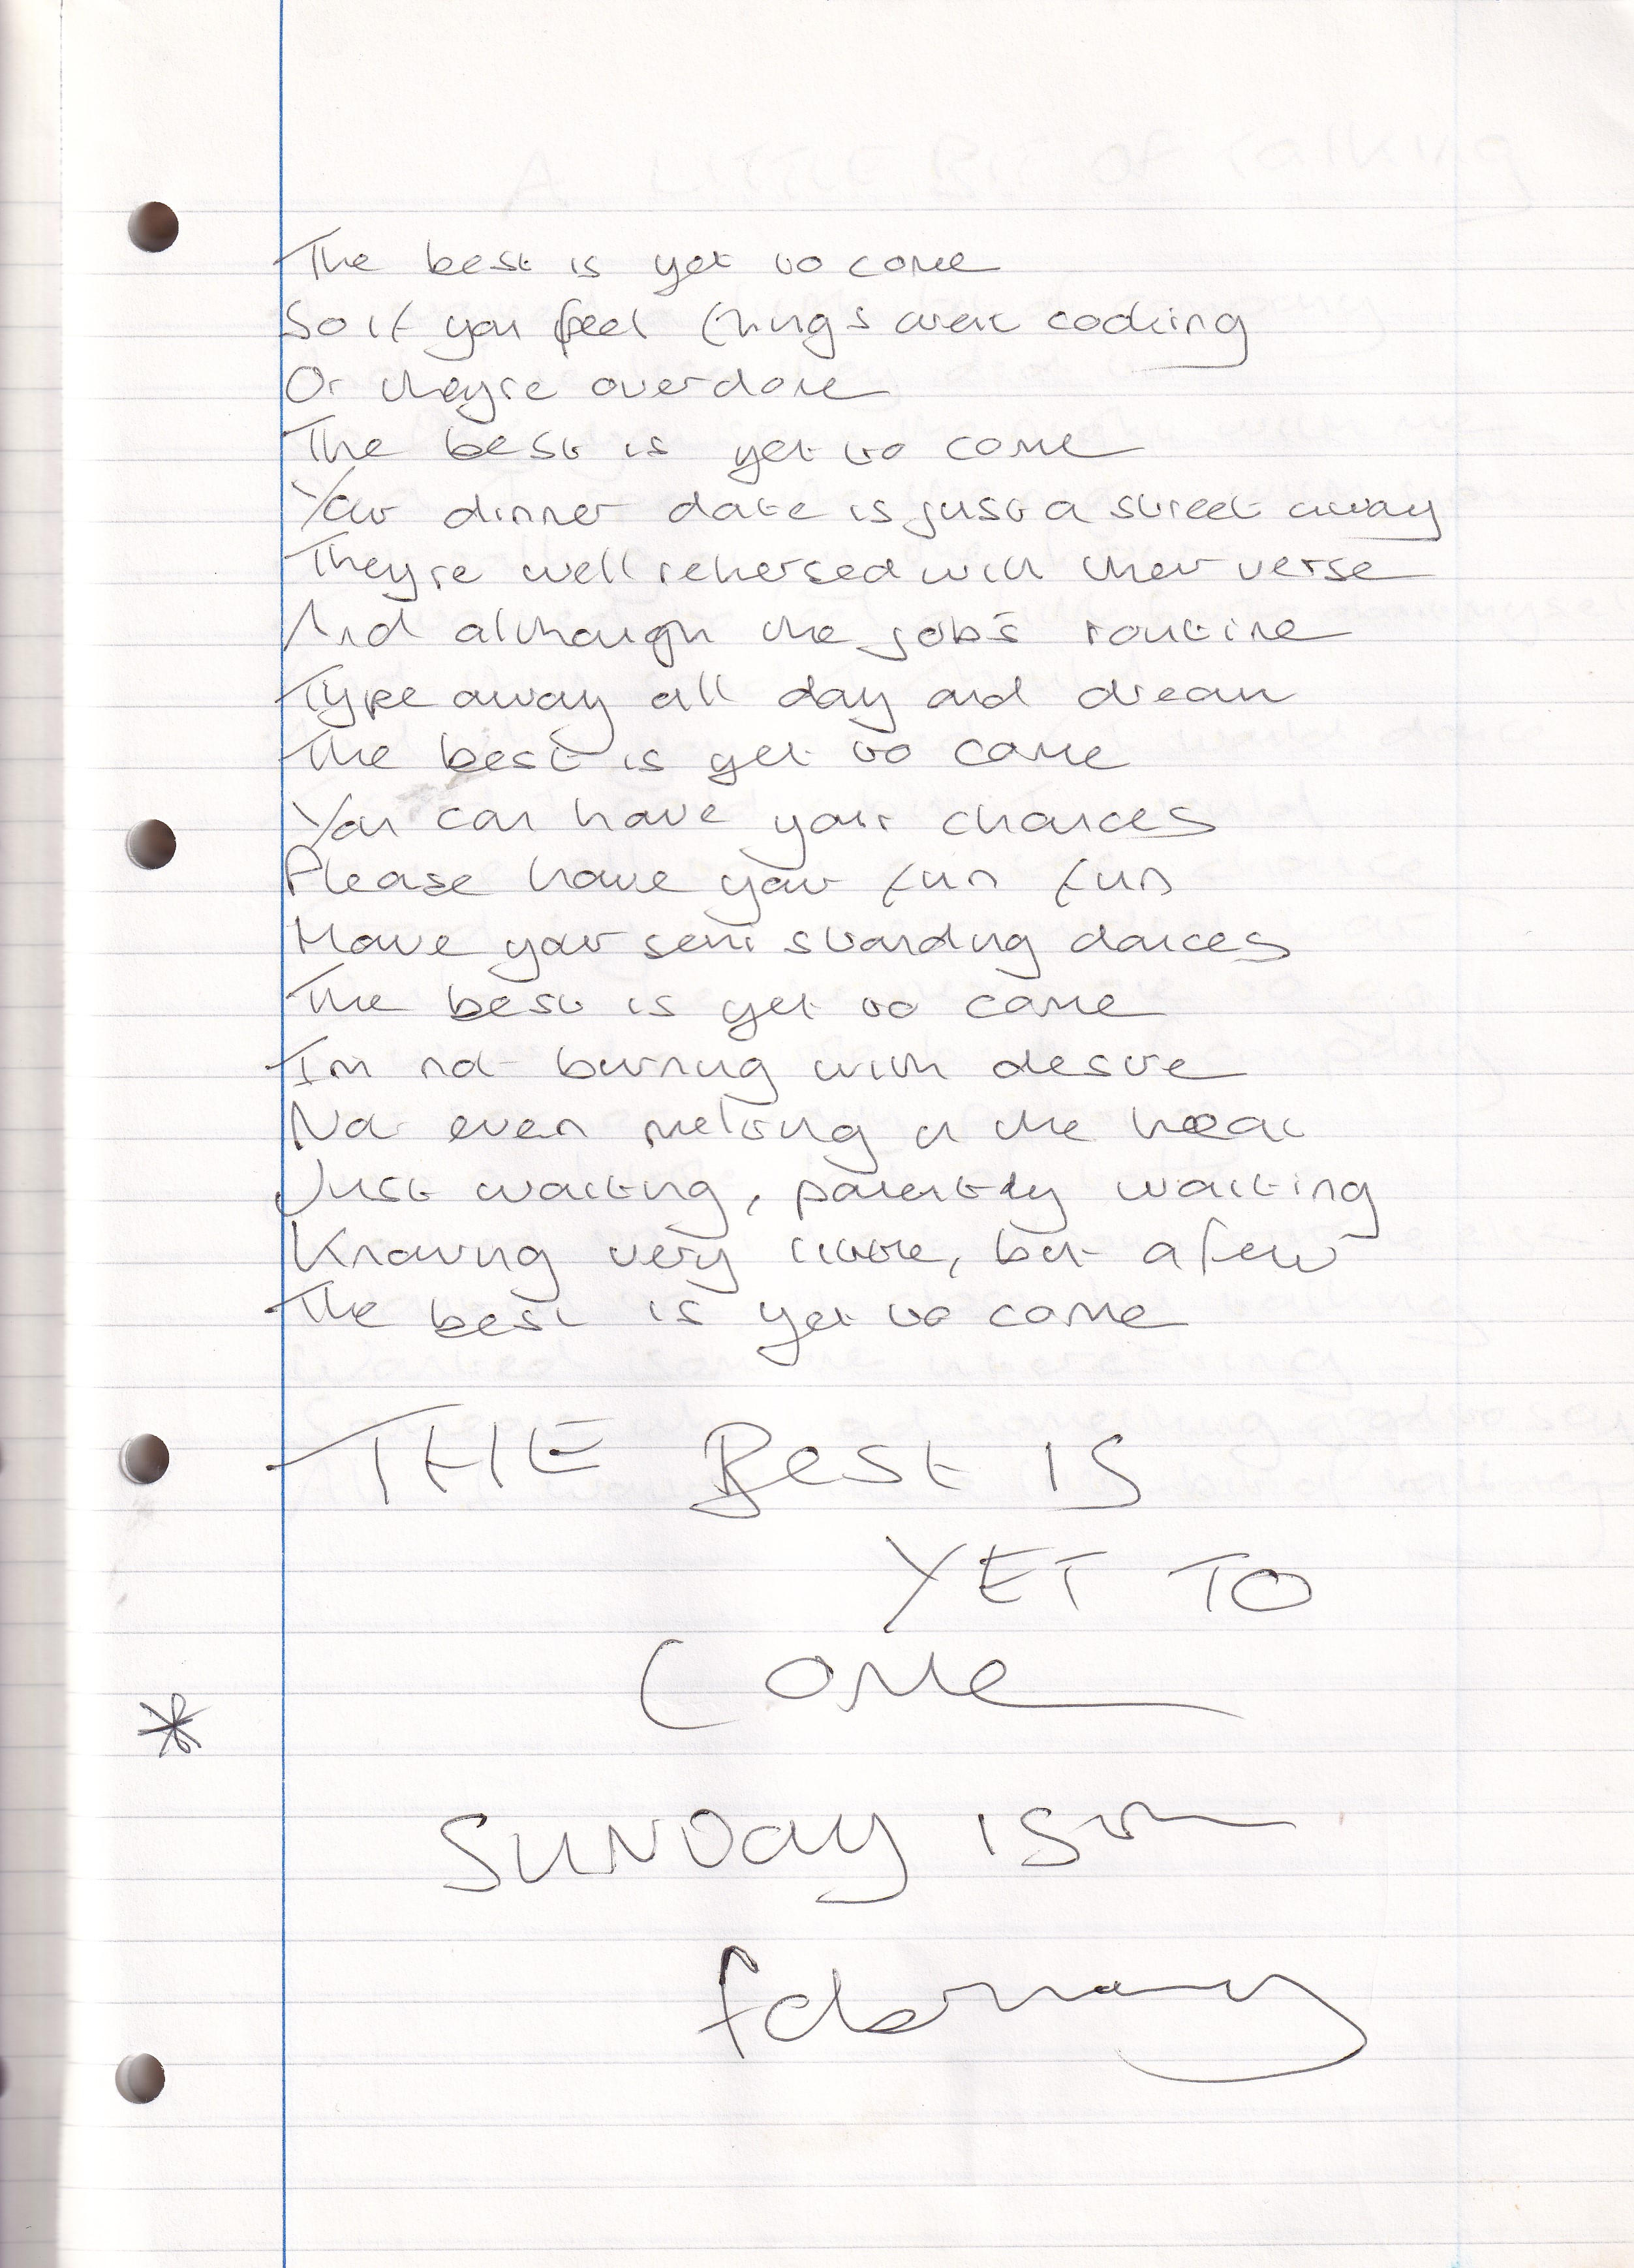 The best is yet to come
So if you feel things aren't cooking
Or theyre overdone
The best is yet to come
Your dinner date is just a street away
Theyre well rehersed with their verse
And although the job's routine
Type away all day and dream
The best is yet to come
You can have your chances
Please have your fun fun
Have your semi standing dances
The best is yet to come
Im not burning with desire
Not even melting in the heat
Just waiting, patiently waiting
Knowing very little, but a few
The best is yet to come
THE Best IS
YET TO
Come
*
SUNDAY IS
february